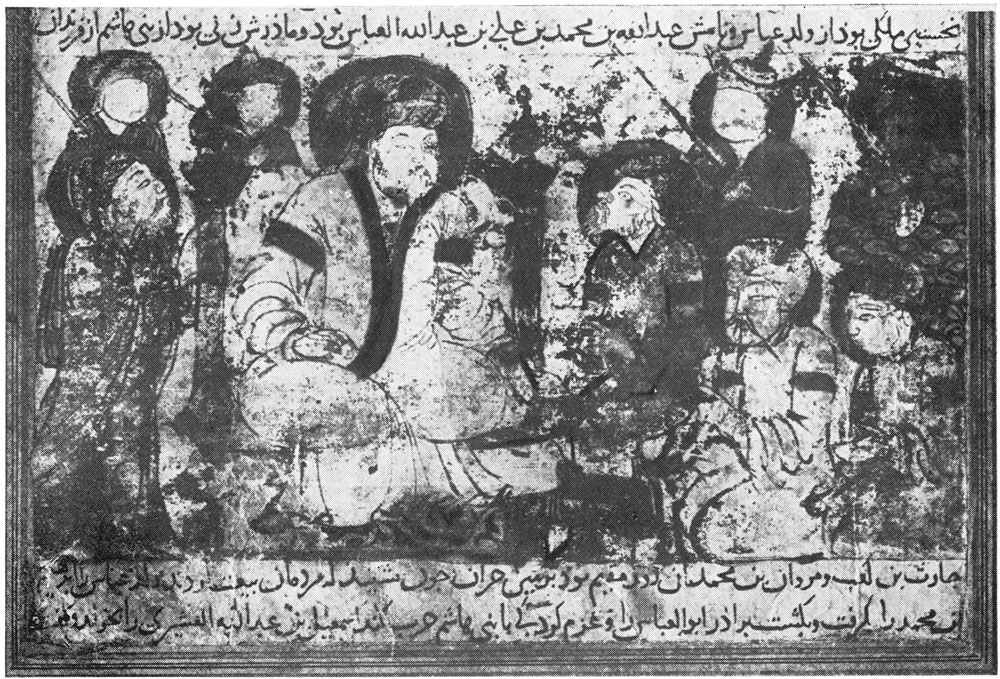 نخستین ملکی بود از ولد عباس و نامش عبدالله بن محمد بن علی بن عبدالله العباس بود و مادرش زنی بود از بنی هاشم از فرزندان
حارث بن کعب و مروان بن محمد مقیم بود حران چون شنید که مردمان بیعت ولد عباس را
بن محمد را بگرفت و بکشت برادر ابوالعباس را و عزم کرد کی با بنی هاشم حرب کند اسمعیل بن عبدالله القشیری را